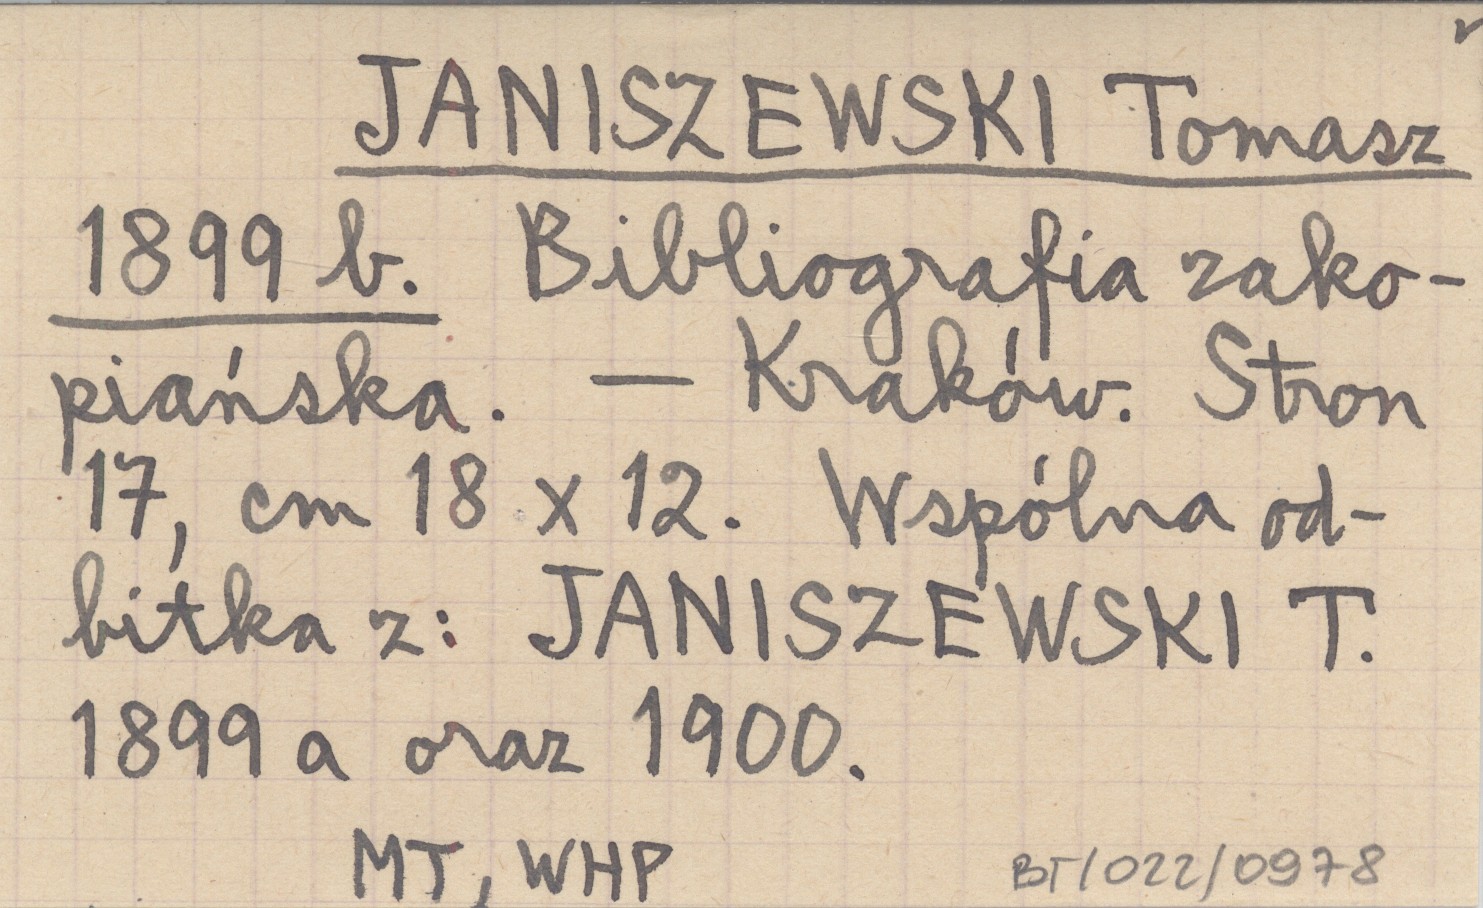 JANISZEWSKI Tomasz
1899 b. Bibliografia zako-
piańska. — Kraków. Stron
17, cm 18 x 12. Wspólna od-
bitka z: JANISZEWSKI T.
1899 a oraz 1900.
MT, WHP
BT/022/0978